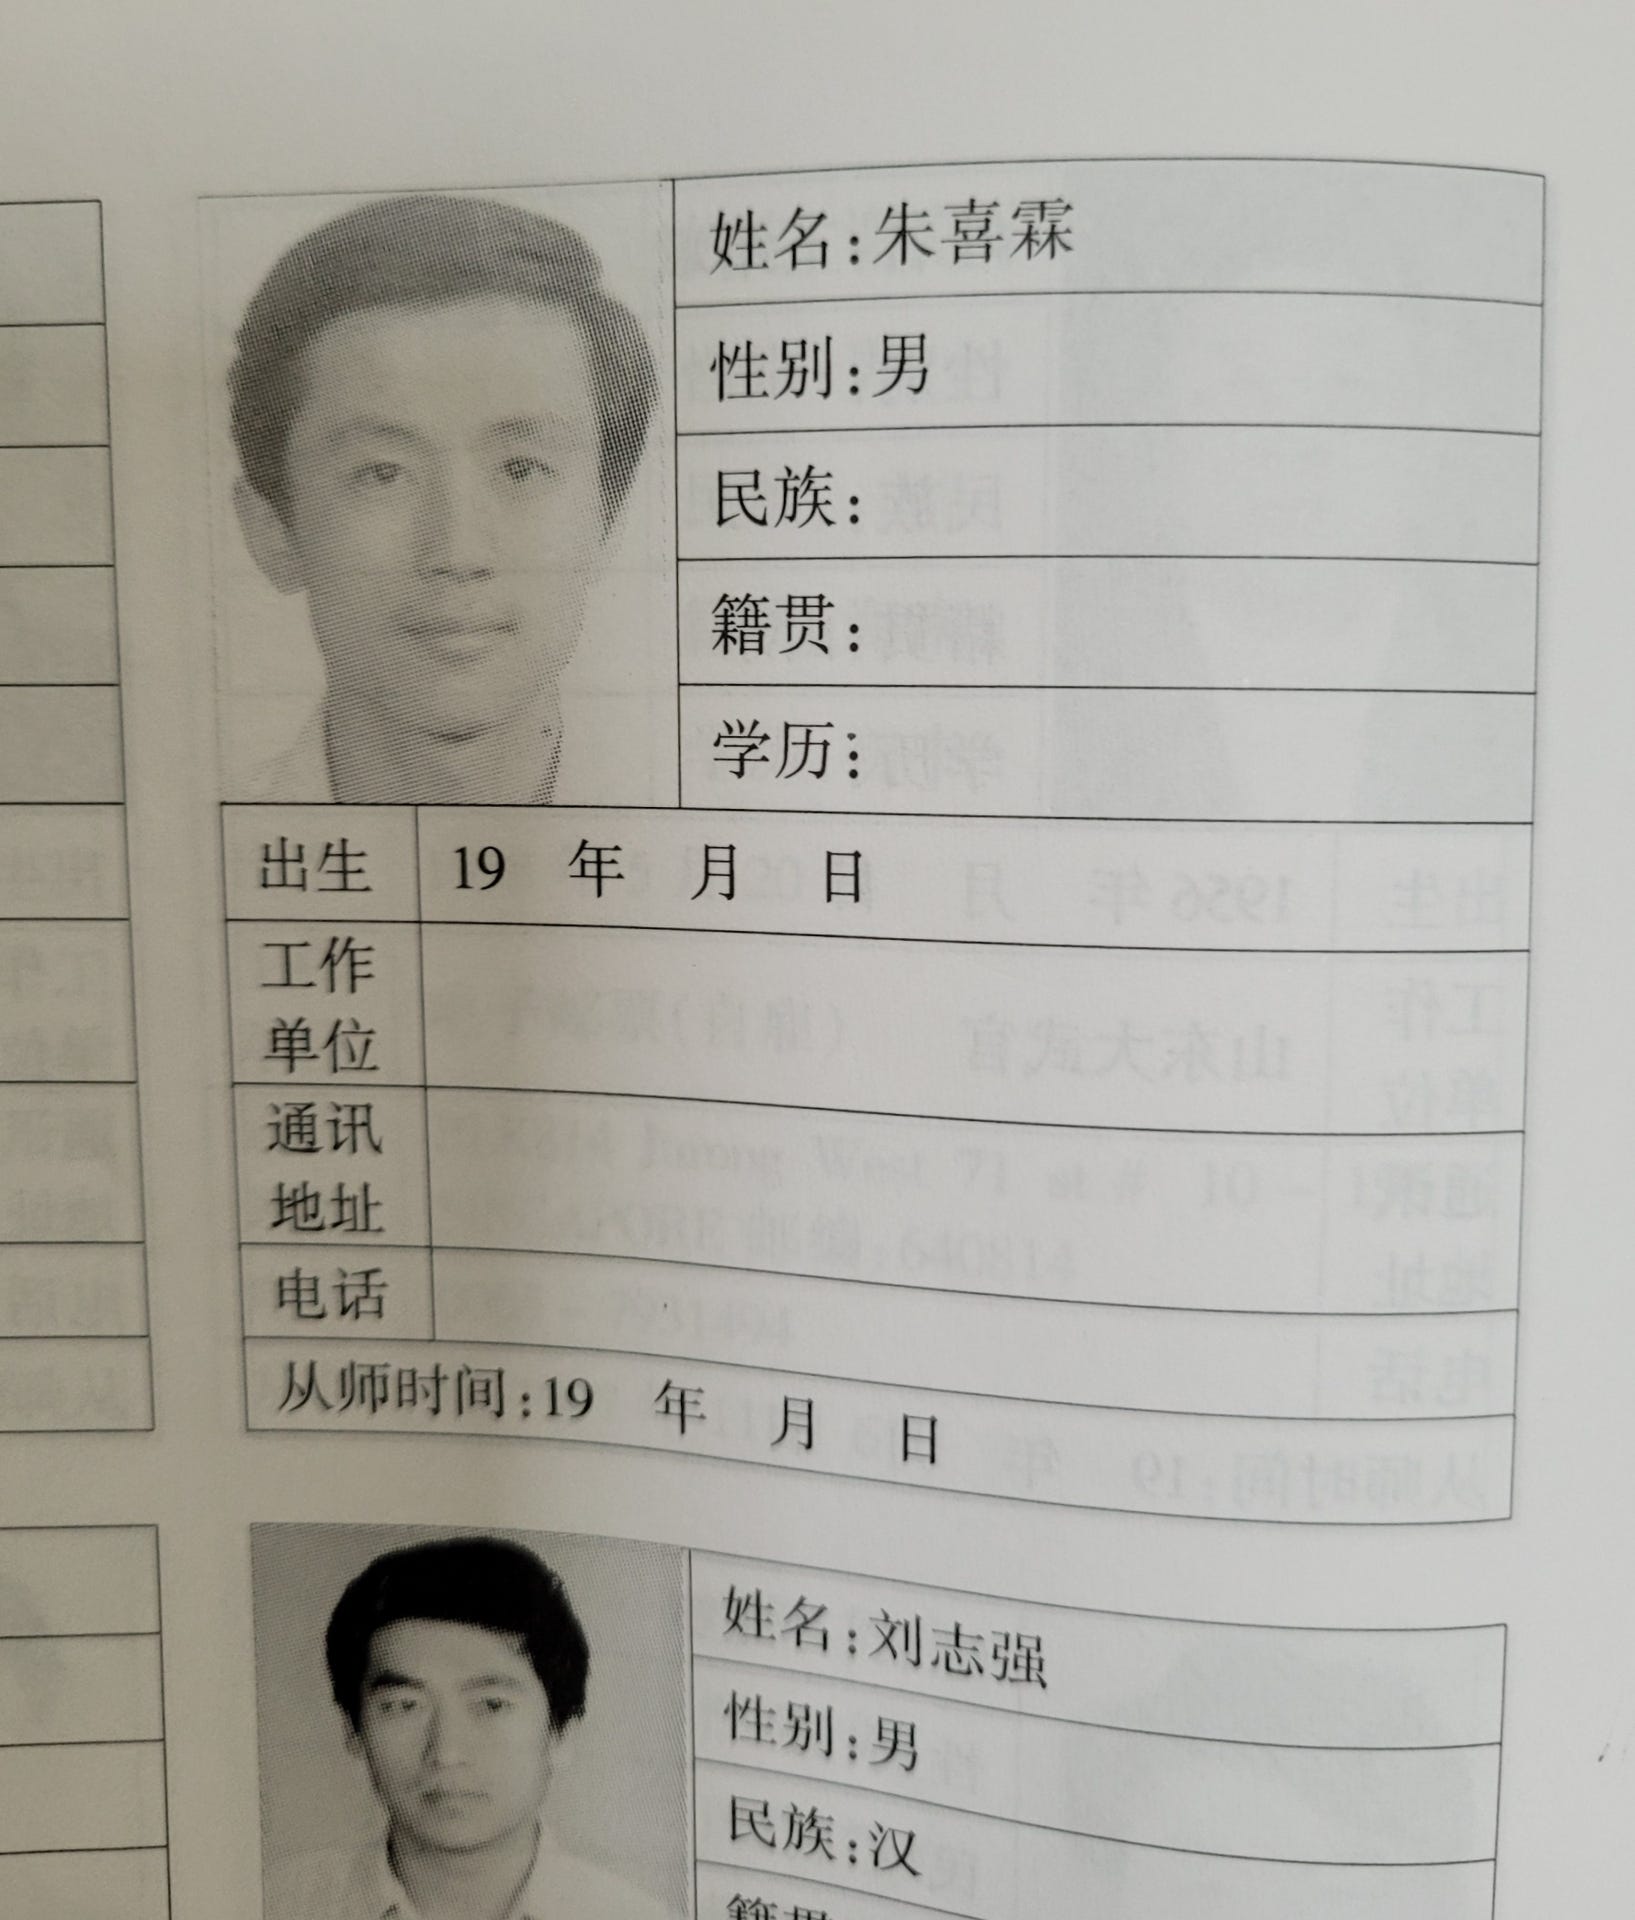 姓名:朱喜霖
性别:男
民族:
籍贯:
学历:
出生 19 年 月 日
工作
单位
通讯
地址
电话
从师时间:19 年 月 日
姓名:刘志强
性别:男
民族:汉
籍贯